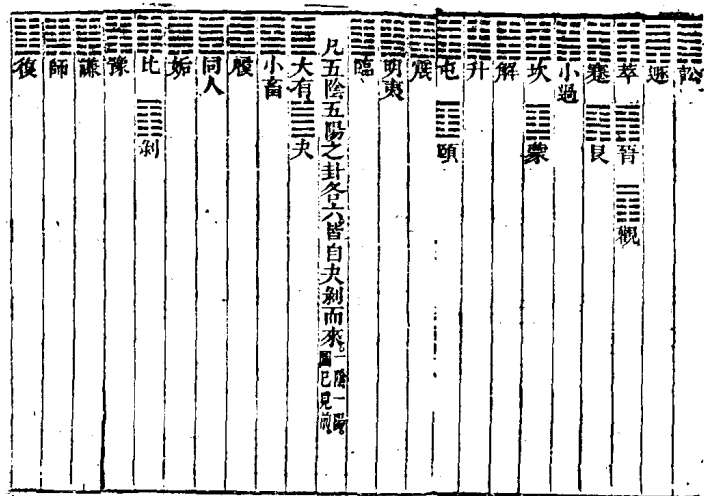 訟
遯
萃 晉 觀
蹇 艮
小過
坎 蒙
解
升
屯 頤
震
明夷
臨
凡五陰五陽之卦各六皆自夬剝而來。一陰一陽圖已見前。
大有 夬
小畜
履
同人
姤
比 剝
豫
謙
師
復